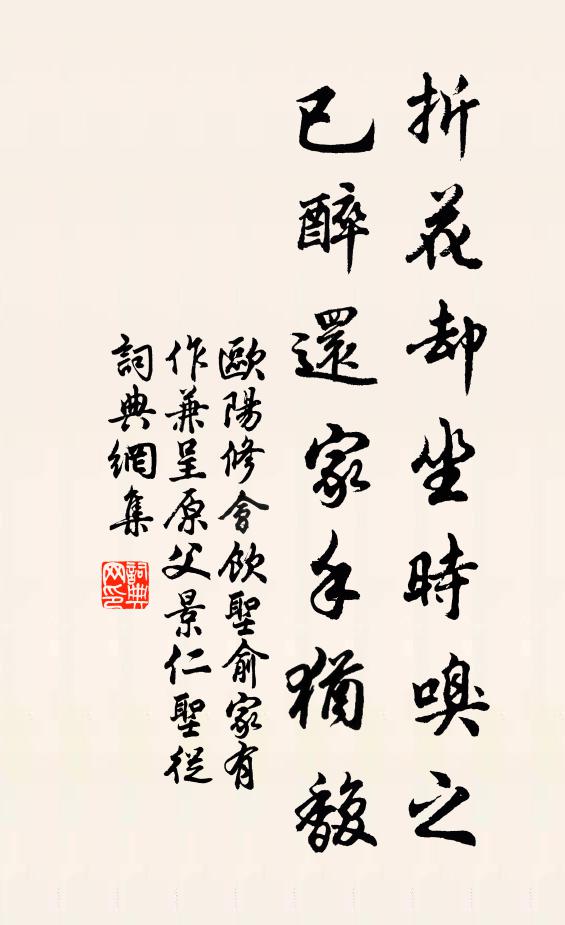 折花却坐時嗅之
已醉還家手猶馥
歐陽修會飲聖俞家有
作兼呈原父景仁聖從
詞典網集
詞典
网印